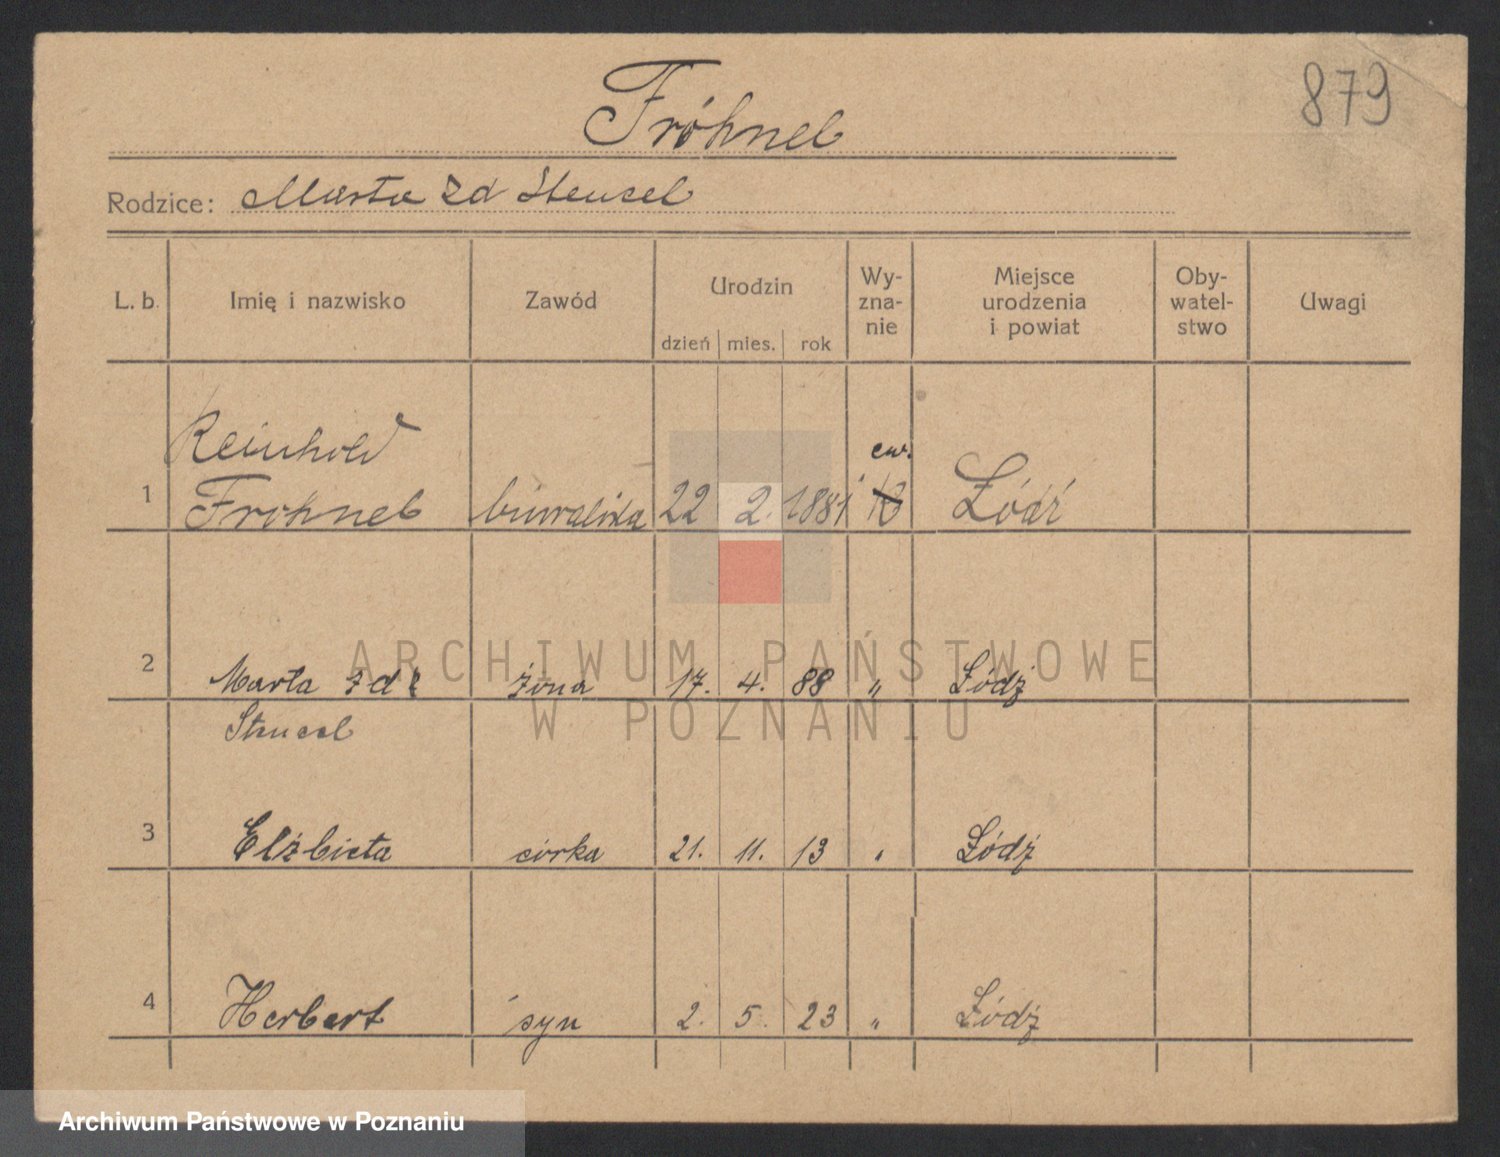 879
Fröhnel
Rodzice: Marta zd Stencel
L. b. Imię i nazwisko Zawód Urodzin dzień mies. rok Wy-zna-nie Miejsce urodzenia i powiat Oby-watel-stwo Uwagi
Reinhold ew.
1 Frohnel biuralista 22 2. 1881 Łódź
2 Marta zd żona 17. 4. 88 „ Łódź
Stencel
3 Elżbieta córka 21. 11. 13 „ Łódź
4 Herbert syn 2. 5. 23 „ Łódź
ARCHIWUM PAŃSTWOWE
W POZNANIU
Archiwum Państwowe w Poznaniu